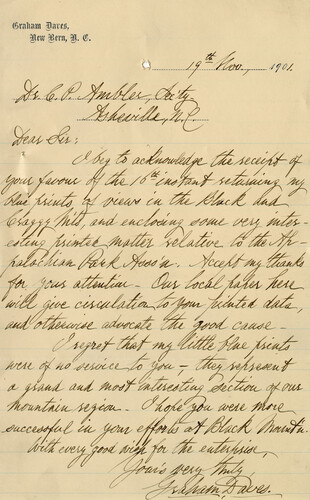 Graham Daves,
New Bern, N. C.
19th Nov., 1901.
Dr. C. P. Ambler, Sec'ty
Asheville, N.C.
Dear Sir:
I beg to acknowledge the receipt of
your favour of the 16th instant returning my
blue prints of views in the Black and
Craggy Mts, and enclosing some very inter-
esting printed matter relative to the Ap-
palachian Park Asso'n. Accept my thanks
for your attention - Our local paper here
will give circulation to your printed data,
and otherwise advocate the good cause -
I regret that my little blue prints
were of no service to you - they represent
a grand and most interesting section of our
mountain region - I hope you were more
successful in your efforts at Black Mount'n.
With every good wish for the enterprise,
Yours very truly
Graham Daves.